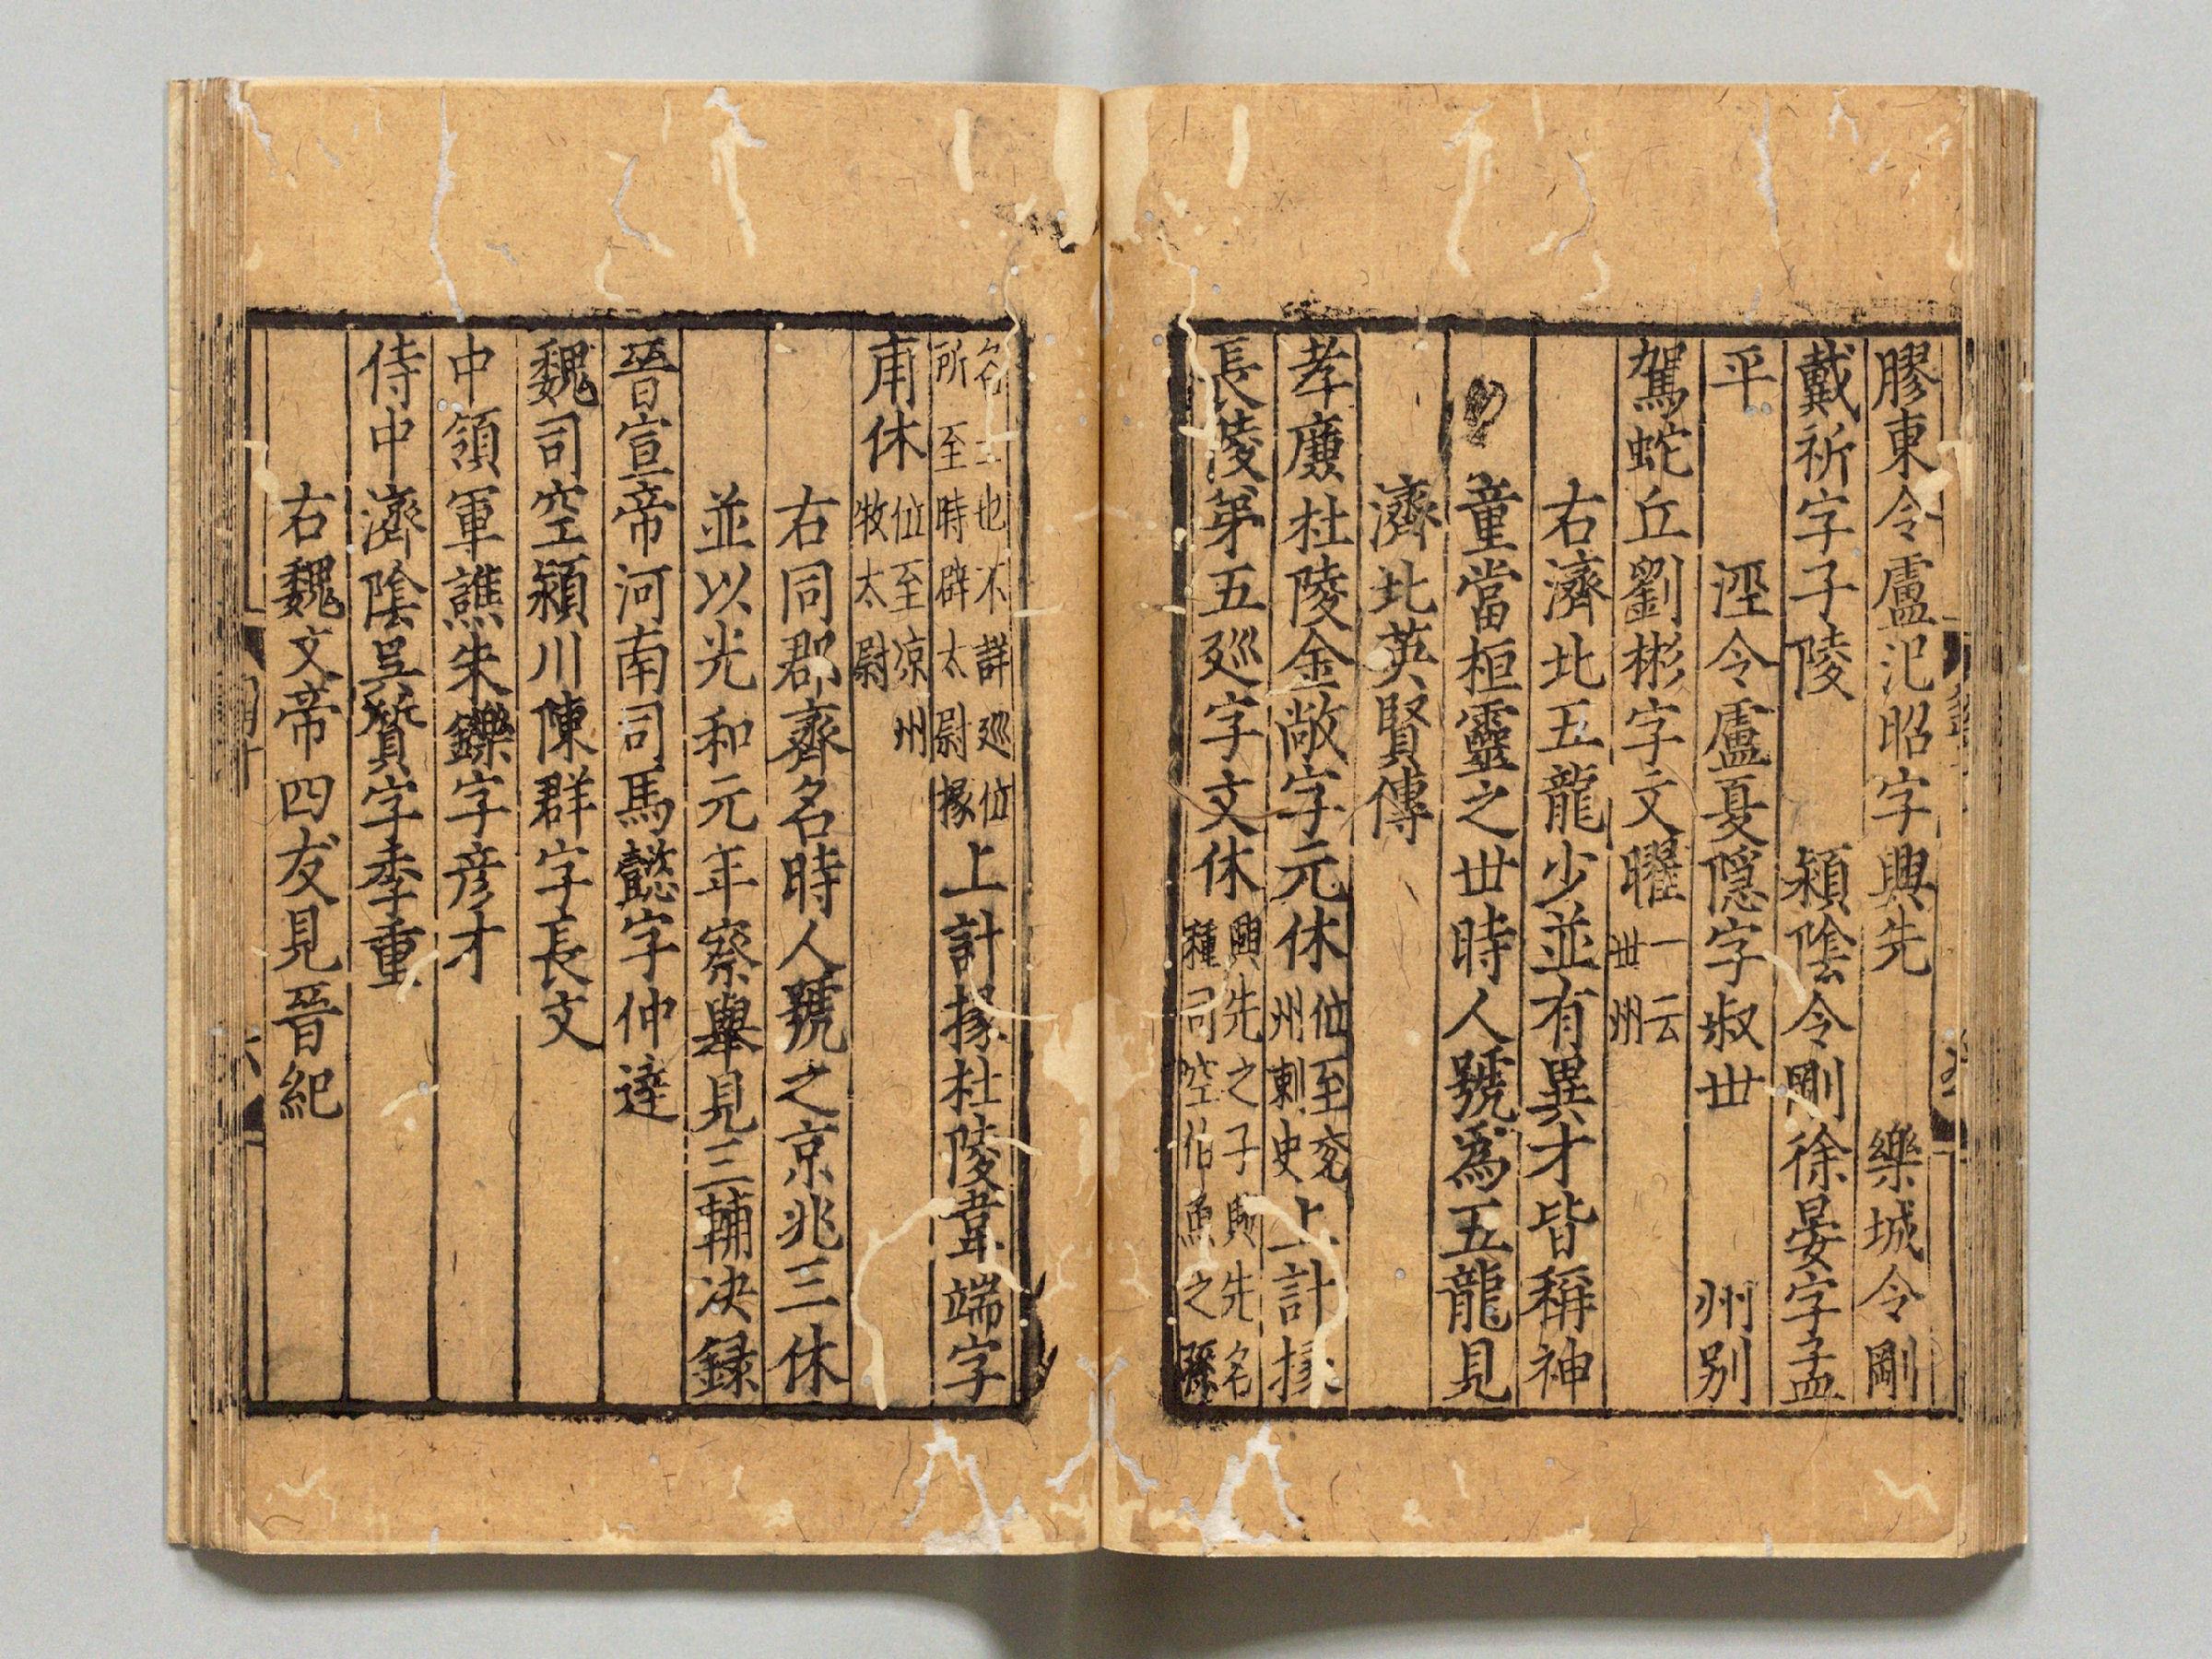 膠東令盧汜昭字興先　樂城令剛
戴祈字子陵　潁陰令剛徐晏字孟
平　涇令盧夏隱字叔世　州別
駕蛇丘劉彬字文曜一云世州
右濟北五龍少並有異才皆稱神
童當桓靈之世時人號爲五龍見
濟北英賢傳
孝廉杜陵金敞字元休位至兖州刺史上計掾
長陵第五巡字文休興先之子興先名種司空伯魚之孫
名士也不詳巡位所至時辟太尉掾上計掾杜陵韋端字
甫休位至凉州牧太尉
右同郡齊名時人號之京兆三休
並以光和元年察舉見三輔决録
晉宣帝河南司馬懿字仲達
魏司空潁川陳群字長文
中領軍譙朱鑠字彦才
侍中濟隂吴質字季重
右魏文帝四友見晉紀